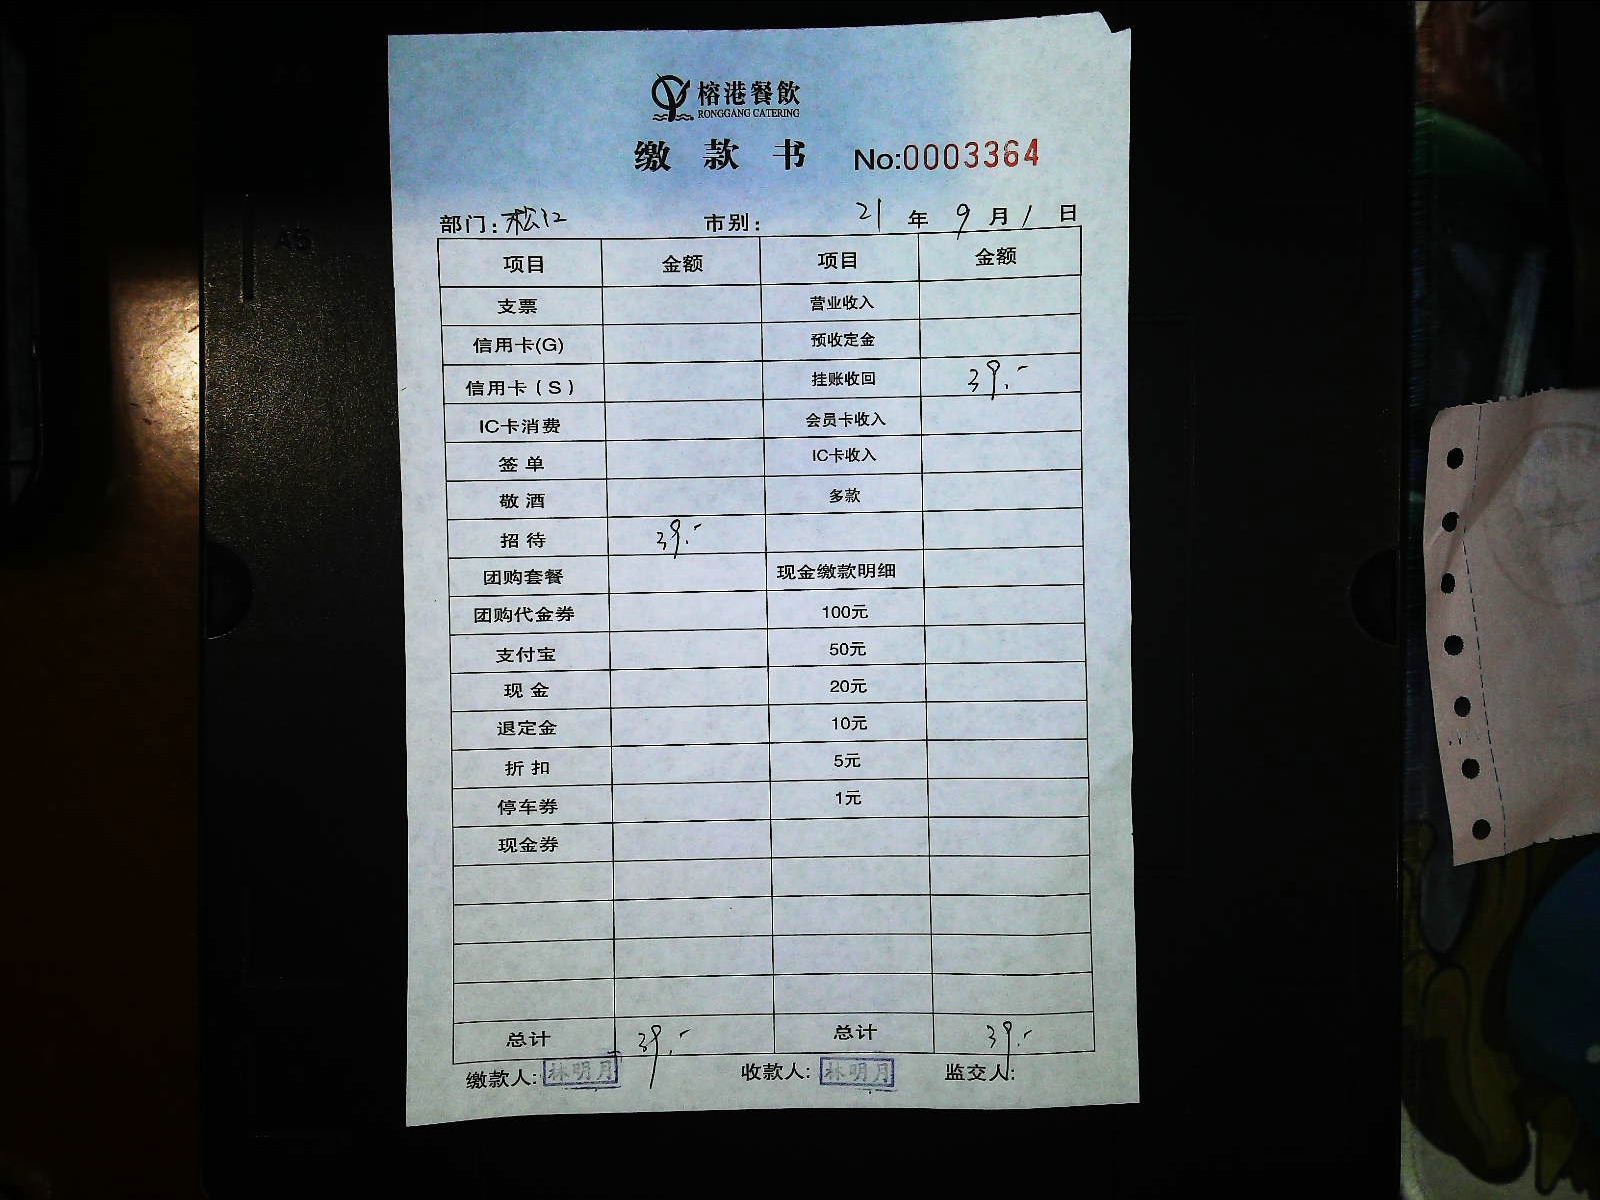 榕港餐飲
RONGGANG CATERING
缴款书 No:0003364
部门:松江 市别: 21年9月1日
项目 金额 项目 金额
支票 营业收入
信用卡(G) 预收定金
信用卡(S) 挂账收回 39.-
IC卡消费 会员卡收入
签单 IC卡收入
敬酒 多款
招待 39.-
团购套餐 现金缴款明细
团购代金券 100元
支付宝 50元
现金 20元
退定金 10元
折扣 5元
停车券 1元
现金券
总计 39.- 总计 39.-
缴款人:林明月 收款人:林明月 监交人: